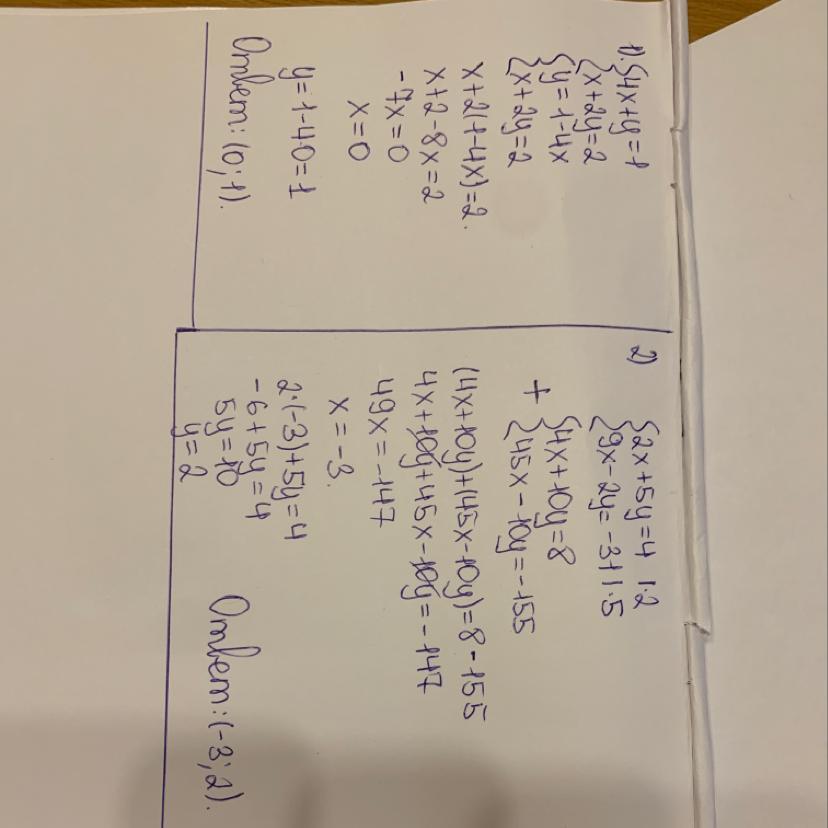 1). {4x+y=1
{x+2y=2
{y=1-4x
{x+2y=2
x+2(1-4x)=2.
x+2-8x=2
-7x=0
x=0
y=1-4·0=1
Ответ: (0;1).
2) {2x+5y=4 |·2
{9x-2y=-31 |·5
+ {4x+10y=8
{45x-10y=-155
(4x+10y)+(45x-10y)=8-155
4x+10y+45x-10y=-147
49x=-147
x=-3.
2·(-3)+5y=4
-6+5y=4
5y=10
y=2
Ответ: (-3;2).